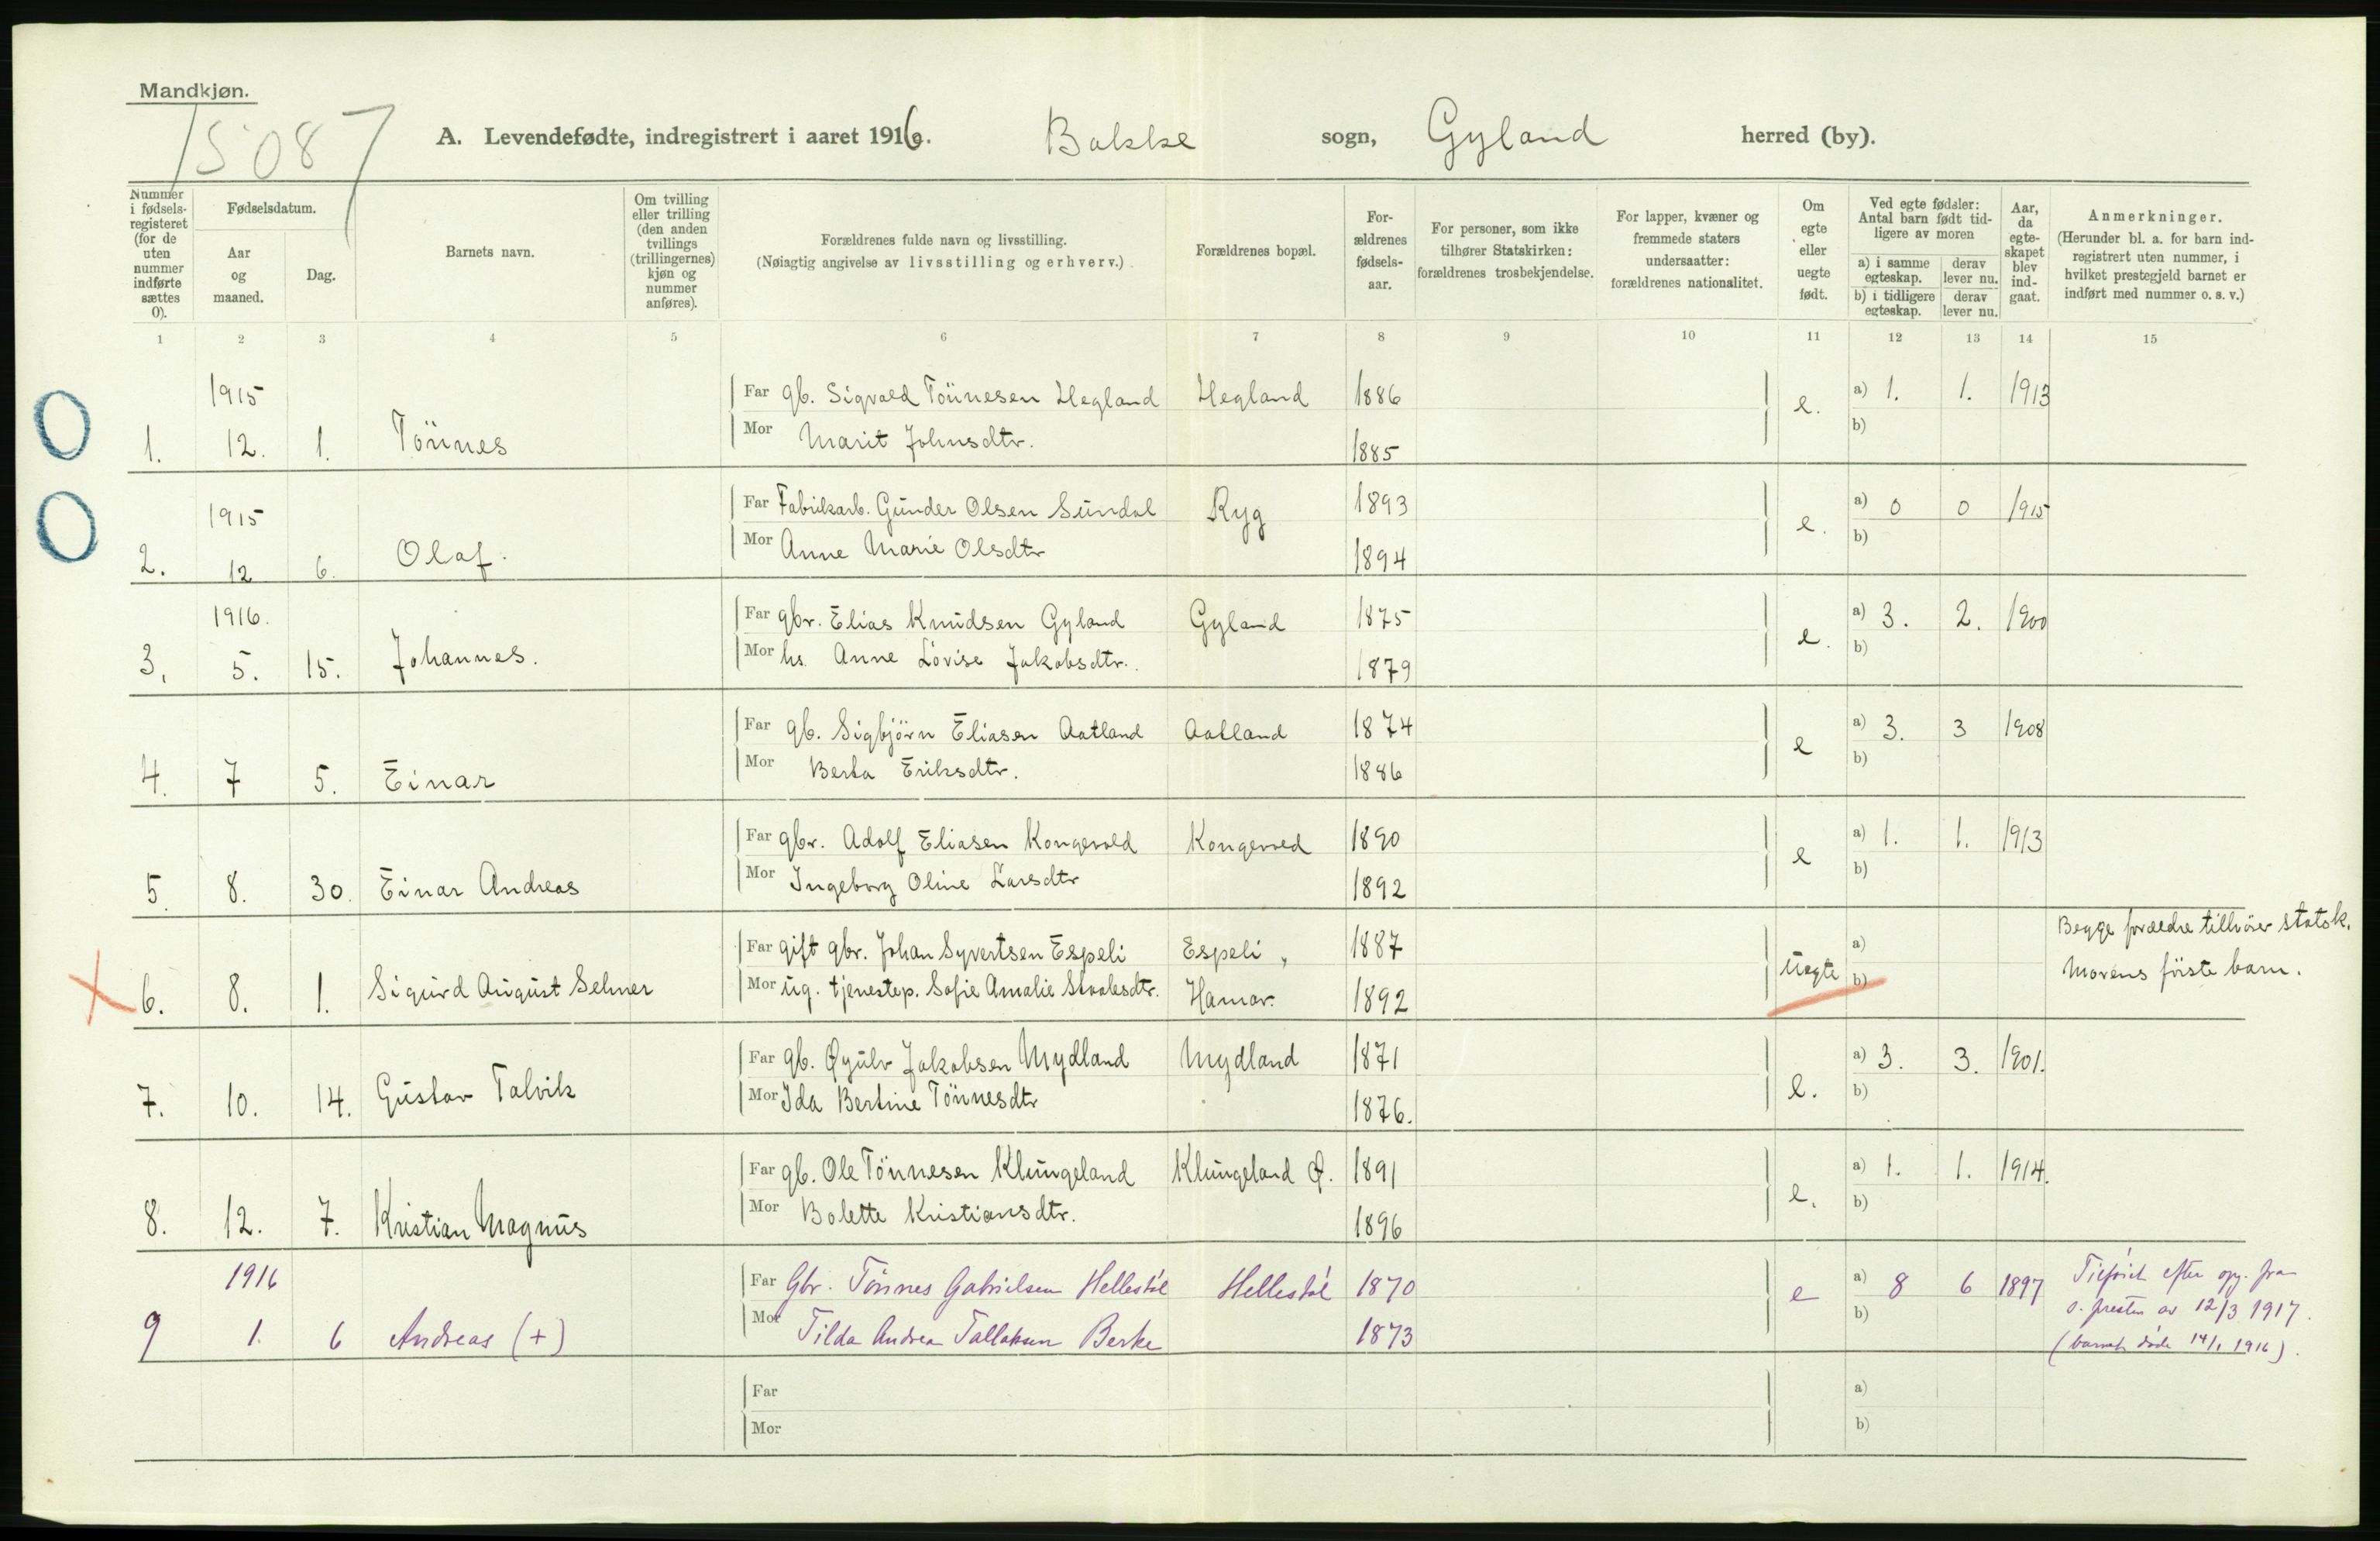 Mandkjøn.
15087
A. Levendefødte, indregistrert i aaret 1916. Bakke sogn, Gyland herred (by).
Nummer i fødsels-registeret (for de uten nummer indførte sættes 0).
Fødselsdatum.
Aar og maaned.
Dag.
Barnets navn.
Om tvilling eller trilling (den anden tvillings (trillingernes) kjøn og nummer anføres).
Forældrenes fulde navn og livsstilling.
(Nøiagtig angivelse av livsstilling og erhverv.)
Forældrenes bopæl.
For-ældrenes fødsels-aar.
For personer, som ikke tilhører Statskirken: forældrenes trosbekjendelse.
For lapper, kvæner og fremmede staters undersaatter: forældrenes nationalitet.
Om egte eller uegte født.
Ved egte fødsler: Antal barn født tid-ligere av moren
a) i samme egteskap. derav lever nu.
b) i tidligere egteskap. derav lever nu.
Aar, da egte-skapet blev ind-gaat.
Anmerkninger.
(Herunder bl. a. for barn ind-registrert uten nummer, i hvilket prestegjeld barnet er indført med nummer o. s. v.)
1 2 3 4 5 6 7 8 9 10 11 12 13 14 15
1915 Far gb. Sigvald Tönnesen Hegland Hegland 1886 e. a) 1. 1. 1913
1. 12. 1. Tönnes Mor Marit Johnsdtr. 1885 b)
1915 Far Fabrikarb. Gunder Olsen Sundal Ryg 1893 e. a) 0 0 1915
2. 12 6. Olaf. Mor Anne Marie Olsdtr 1894 b)
1916. Far gbr. Elias Knudsen Gyland Gyland 1875 e. a) 3. 2. 1900
3. 5. 15. Johannes. Mor hs. Anne Lovise Jakobsdtr. 1879 b)
Far gb. Sigbjörn Eliasen Aatland Aatland 1874 e a) 3. 3 1908
4. 7 5. Einar Mor Berta Eriksdtr. 1886 b)
Far gbr. Adolf Eliasen Kongevold Kongevold 1890 e a) 1. 1. 1913
5. 8. 30. Einar Andreas Mor Ingeborg Oline Larsdtr 1892 b)
Far gift gbr. Johan Syvertsen Espeli Espeli, 1887 uegte a) Begge forældre tilhörer statsk.
6. 8. 1. Sigurd August Selmer Mor ug. tjenestep. Sofie Amalie Staalesdtr. Hamar. 1892 b) Morens förste barn.
Far gb. Øyulv Jakobsen Mydland Mydland 1871 e. a) 3. 3. 1901.
7. 10. 14. Gustav Talvik Mor Ida Bertine Tönnesdtr 1876. b)
Far gb. Ole Tönnesen Klungeland Klungeland Ø. 1891 e. a) 1. 1. 1914.
8. 12. 7. Kristian Magnus Mor Bolette Kristiansdtr. 1896 b)
1916 Far Gbr. Tönnes Gabrielsen Hellestöl Hellestöl 1870 e a) 8 6 1897 Tilföiet efter opg. fra
9 1. 6 Andreas (+) Mor Tilda Andrea Tallaksen Berke 1873 b) s. presten av 12/3 1917.
(barnet döde 14/1 1916).
Far a)
Mor b)